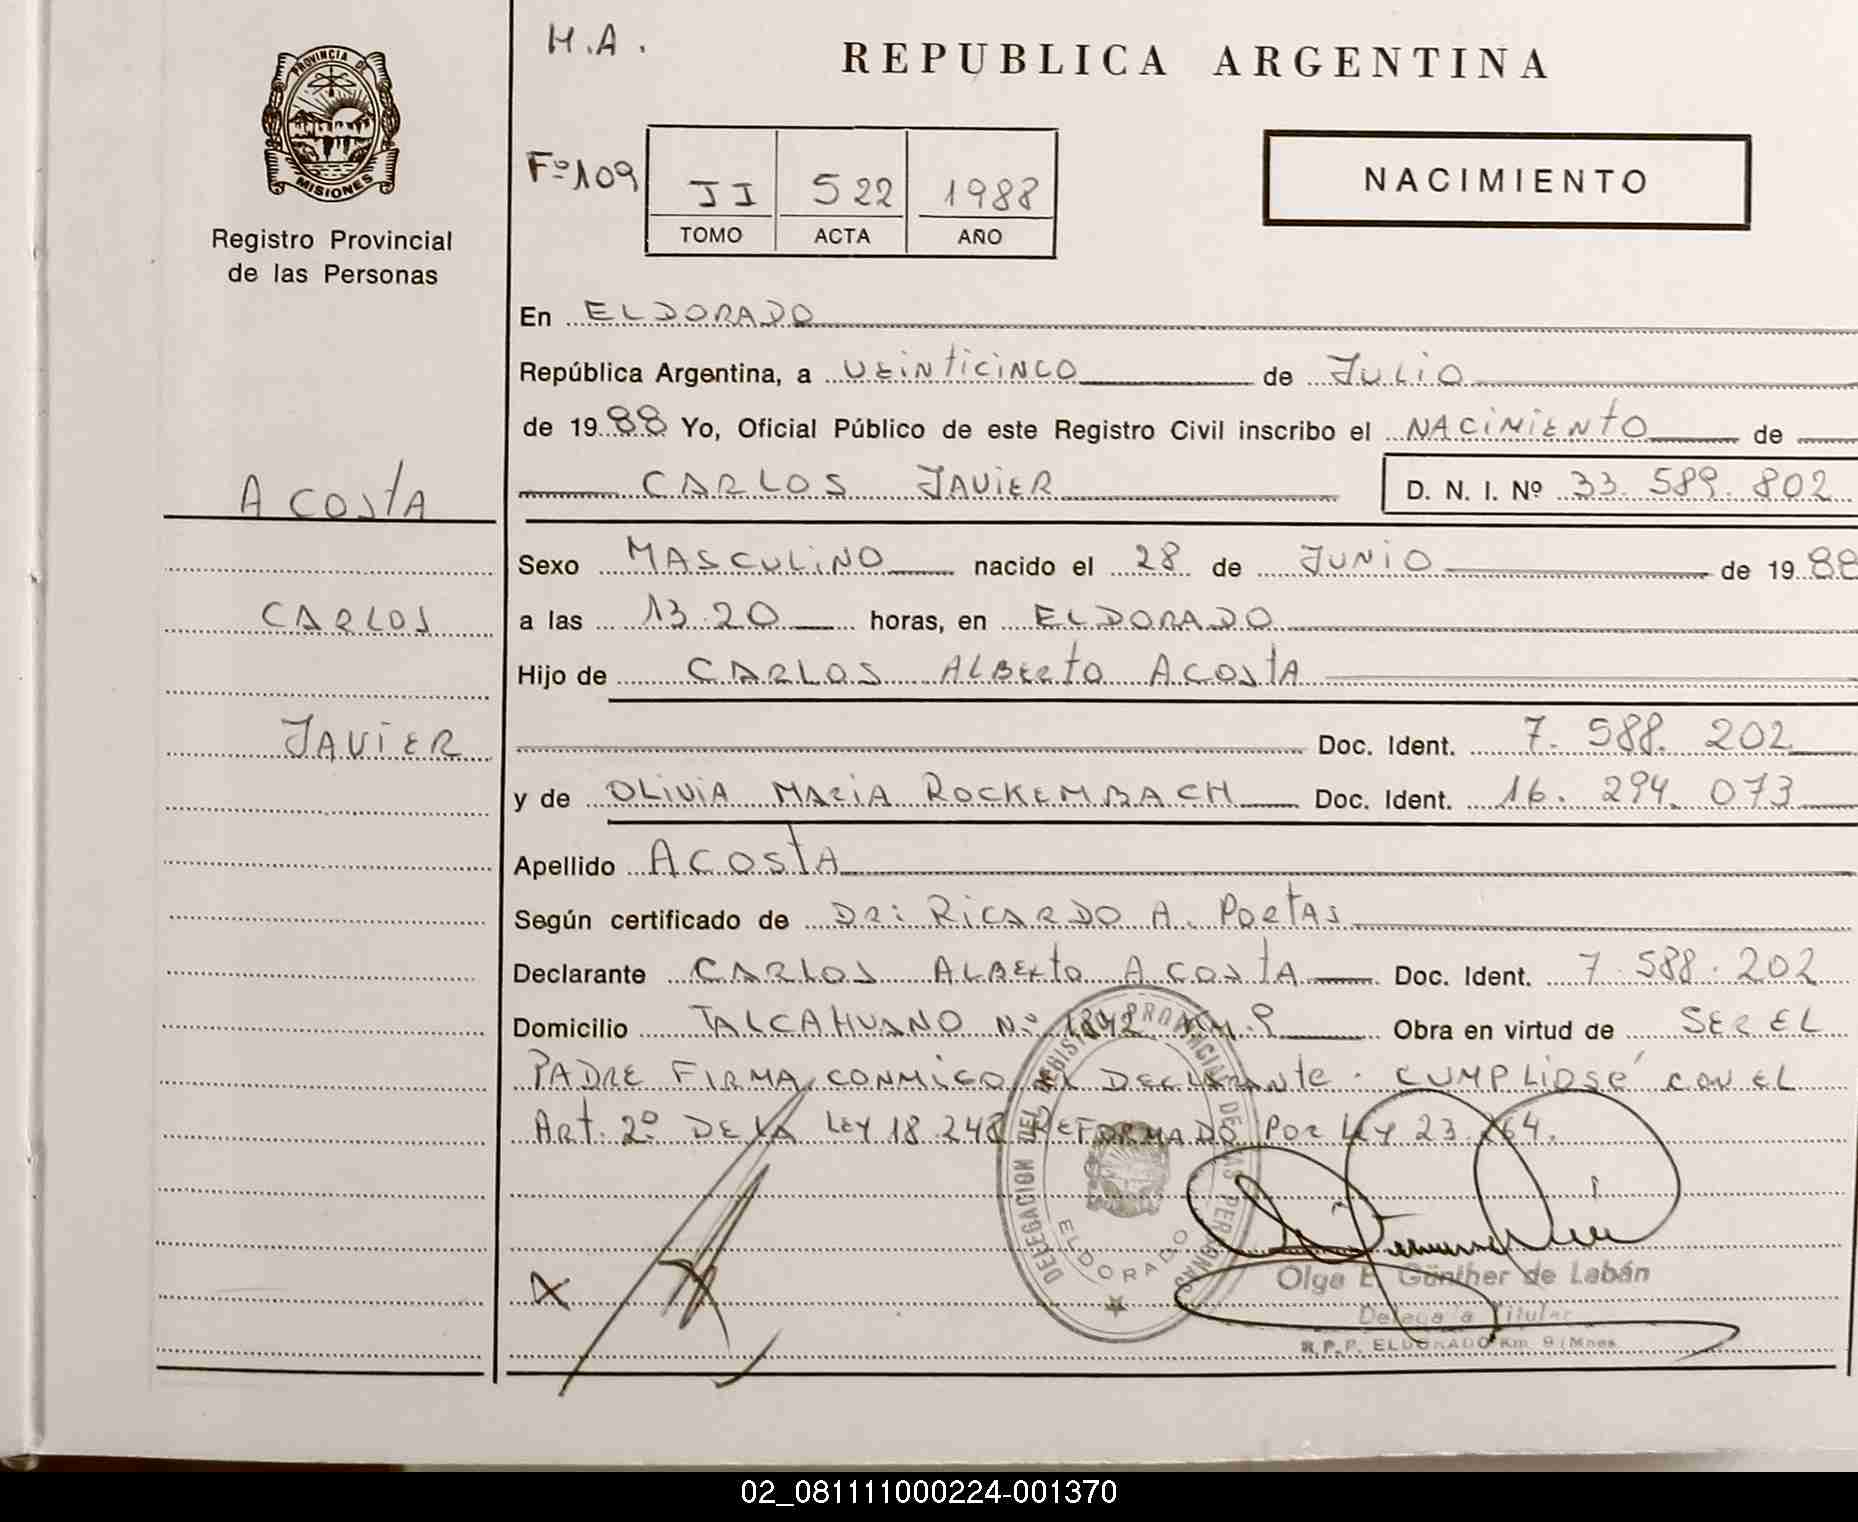 H.A.
REPUBLICA ARGENTINA
PROVINCIA DE
MISIONES
Registro Provincial
de las Personas
Fº109
II 522 1988
TOMO ACTA AÑO
NACIMIENTO
En ELDORADO
República Argentina, a VEINTICINCO de JULIO
de 1988 Yo, Oficial Público de este Registro Civil inscribo el NACIMIENTO de
CARLOS JAVIER D. N. I. Nº 33.589.802
ACOSTA
CARLOS
JAVIER
Sexo MASCULINO nacido el 28 de JUNIO de 1988
a las 13.20 horas, en ELDORADO
Hijo de CARLOS ALBERTO ACOSTA
Doc. Ident. 7.588.202
y de OLIVIA MARIA ROCKEMBACH Doc. Ident. 16.294.073
Apellido ACOSTA
Según certificado de DR: RICARDO A. PORTAS
Declarante CARLOS ALBERTO ACOSTA Doc. Ident. 7.588.202
Domicilio TALCAHUANO Nº 1842 KM.9 Obra en virtud de SER EL
PADRE FIRMA CONMIGO EL DECLARANTE. CUMPLIOSÉ CON EL
Art. 2º DE LA LEY 18.248 REFORMADO POR LEY 23.264.
DELEGACION DEL REGISTRO PROVINCIAL DE LAS PERSONAS
ELDORADO
Olga E. Günther de Labán
Delegada Titular
R.P.P. ELDORADO Km. 9 (Mnes.
02_081111000224-001370